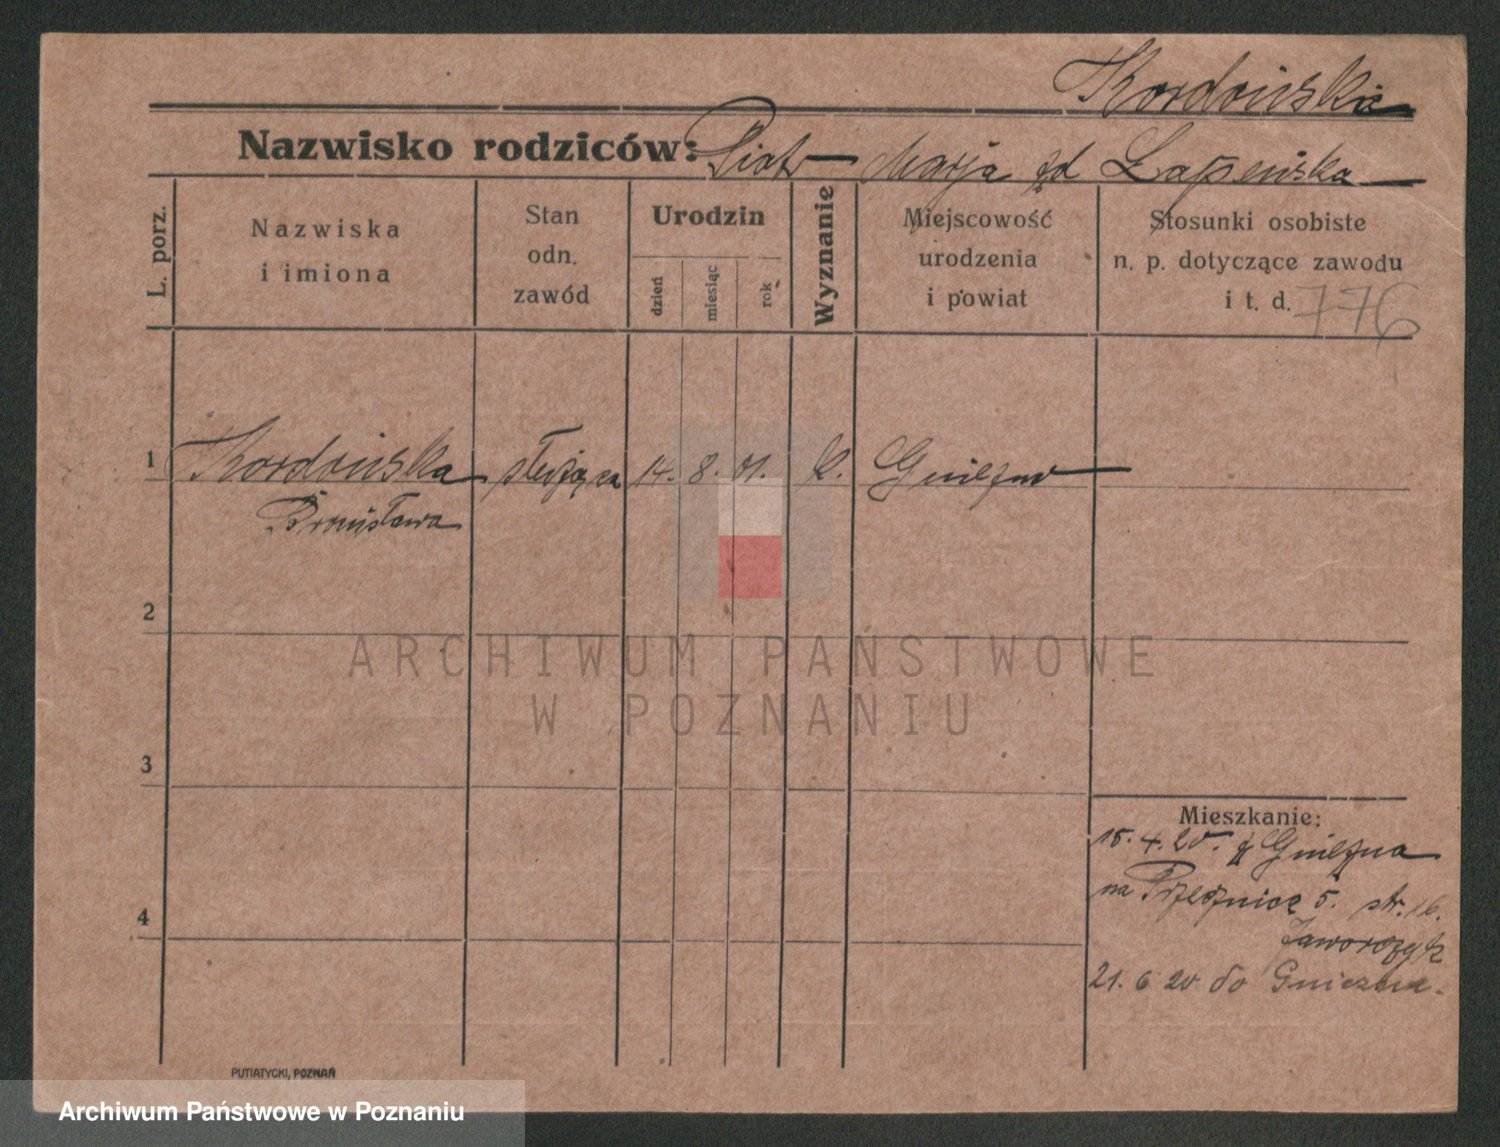 Kordońska
Nazwisko rodziców: Piotr Marja zd Łapeńska
L. porz.
Nazwiska
i imiona
Stan
odn.
zawód
Urodzin
dzień
miesiąc
rok
Wyznanie
Miejscowość
urodzenia
i powiat
Stosunki osobiste
n. p. dotyczące zawodu
i t. d. 776
1 Kordońska służąca 14. 8. 01. k. Gniezno
Bronisława
2
ARCHIWUM PAŃSTWOWE
W POZNANIU
3
Mieszkanie:
15.4.20. z Gniezna
na Przecznicę 5. str. 16.
Jaworczyk
4
21. 6 20 do Gniezna.
PUTIATYCKI, POZNAŃ
Archiwum Państwowe w Poznaniu